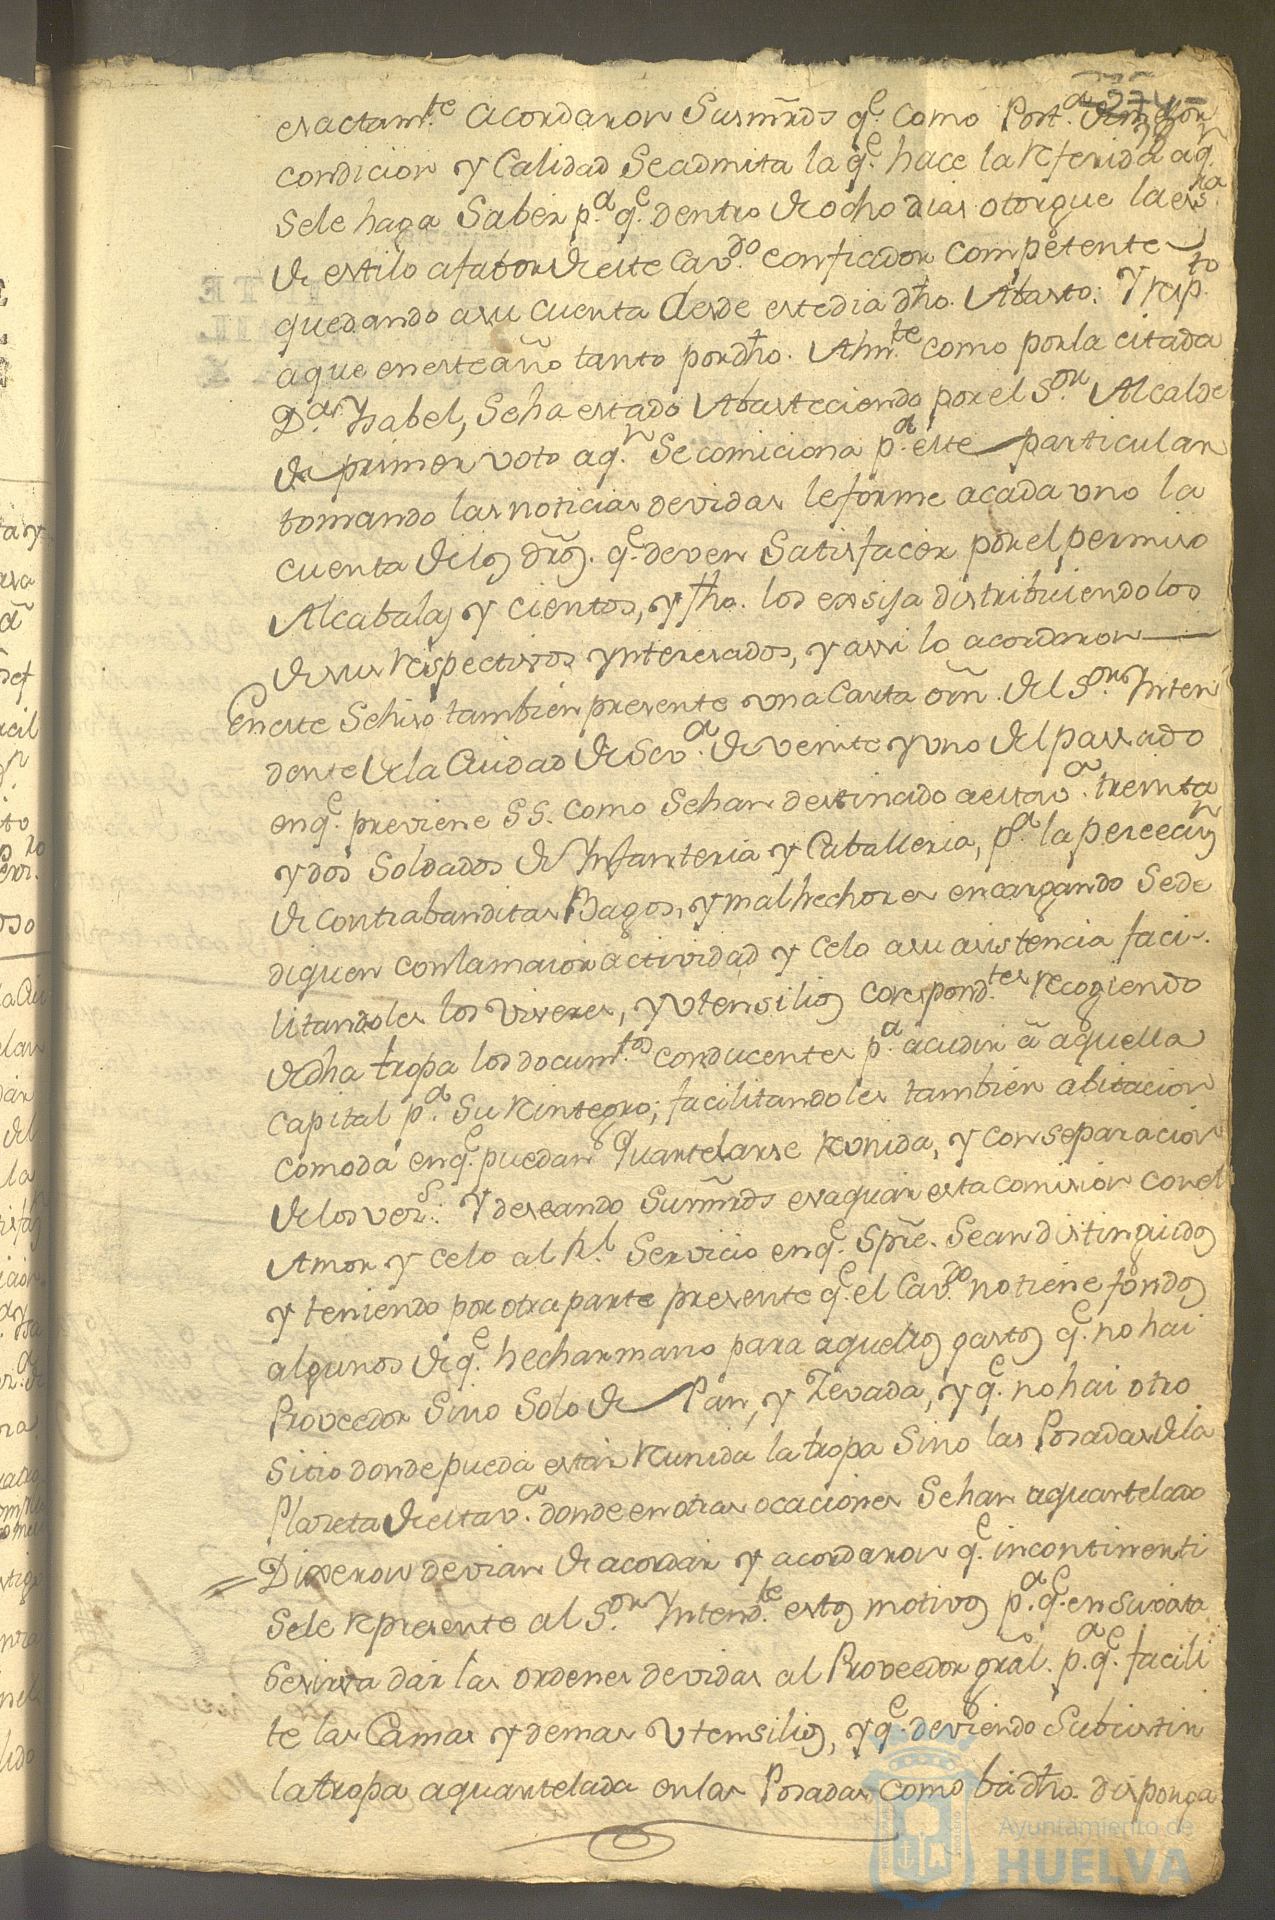 274
exactamte. acordaron Susmrds qe. como Post.a de mejor
condicion y Calidad Seadmita la qe. hace la referida aqn.
Sele haga Saber pa. qe. dentro de ocho dias otorgue la essra.
de estilo afabor de este Cavdo. con fiador competente
quedando asu cuenta desde este dia dho. Abasto: Y respto.
aque en este año tanto por dho. Alm.te como por la citada
Da. Ysabel, Seha estado Abasteciendo por el Sor. Alcalde
de primer voto aqn. Se comiciona pa. este particular
tomando las noticias devidas le forme acada uno la
cuenta delos dros. qe. deven Satisfacer por el permiso
Alcabalas y cientos, y fho. los exsija distribuiendolos
de sus respectivos ynteresados, y assi lo acordaron
En este Sehiso tambien presente una Carta orn. del Sor. Ynten
dente de la Ciudad de Seva. de veinte y uno del passado
enqe. previene S S. como Sehan destinado a esta va. treinta
y dos Soldados de Ynfanteria y Caballeria, pa. la persecuzn
de contrabandistas Bagos, y malhechores encargando Sede
diquen con la maior actividad y celo asu asistencia faci-
litandoles los viveres, y utensilios corespondtes. recogiendo
de dha tropa los documtos. conducentes pa. acudir â aquella
Capital pa. Su reintegro; facilitandoles tambien abitacion
comoda enqe. puedan Quartelarse reunida, y con separacion
de los vezs.: Y deseando Susmrds evaquar esta comision con el
Amor y celo al Rl. Servicio enqe. Spre. Sean distinguidos
y teniendo por otra parte presente qe. el Cavdo. no tiene fondos
algunos de qe. hechar mano para aquellos gastos qe. no hai
Proveedor Sino Solo de Pan, y Zevada, y qe. no hai otro
Sitio donde pueda estar reunida la tropa Sino las Posadas de la
Plazeta de esta va. donde en otras ocaciones Sehan aquartelado
Dixeron devian de acordar y acordaron qe. incontinenti
Sele represente al Sor. Yntendte. estos motivos pa. qe. en Su vista
Sesirva dar las ordenes devidas al Proveedor gral. pa. qe. facili
te las Camas y demas utensilios, y qe. deviendo Subsistir
la tropa aquartelada en las Posadas como ba dho. disponga
Ayuntamiento de
HUELVA